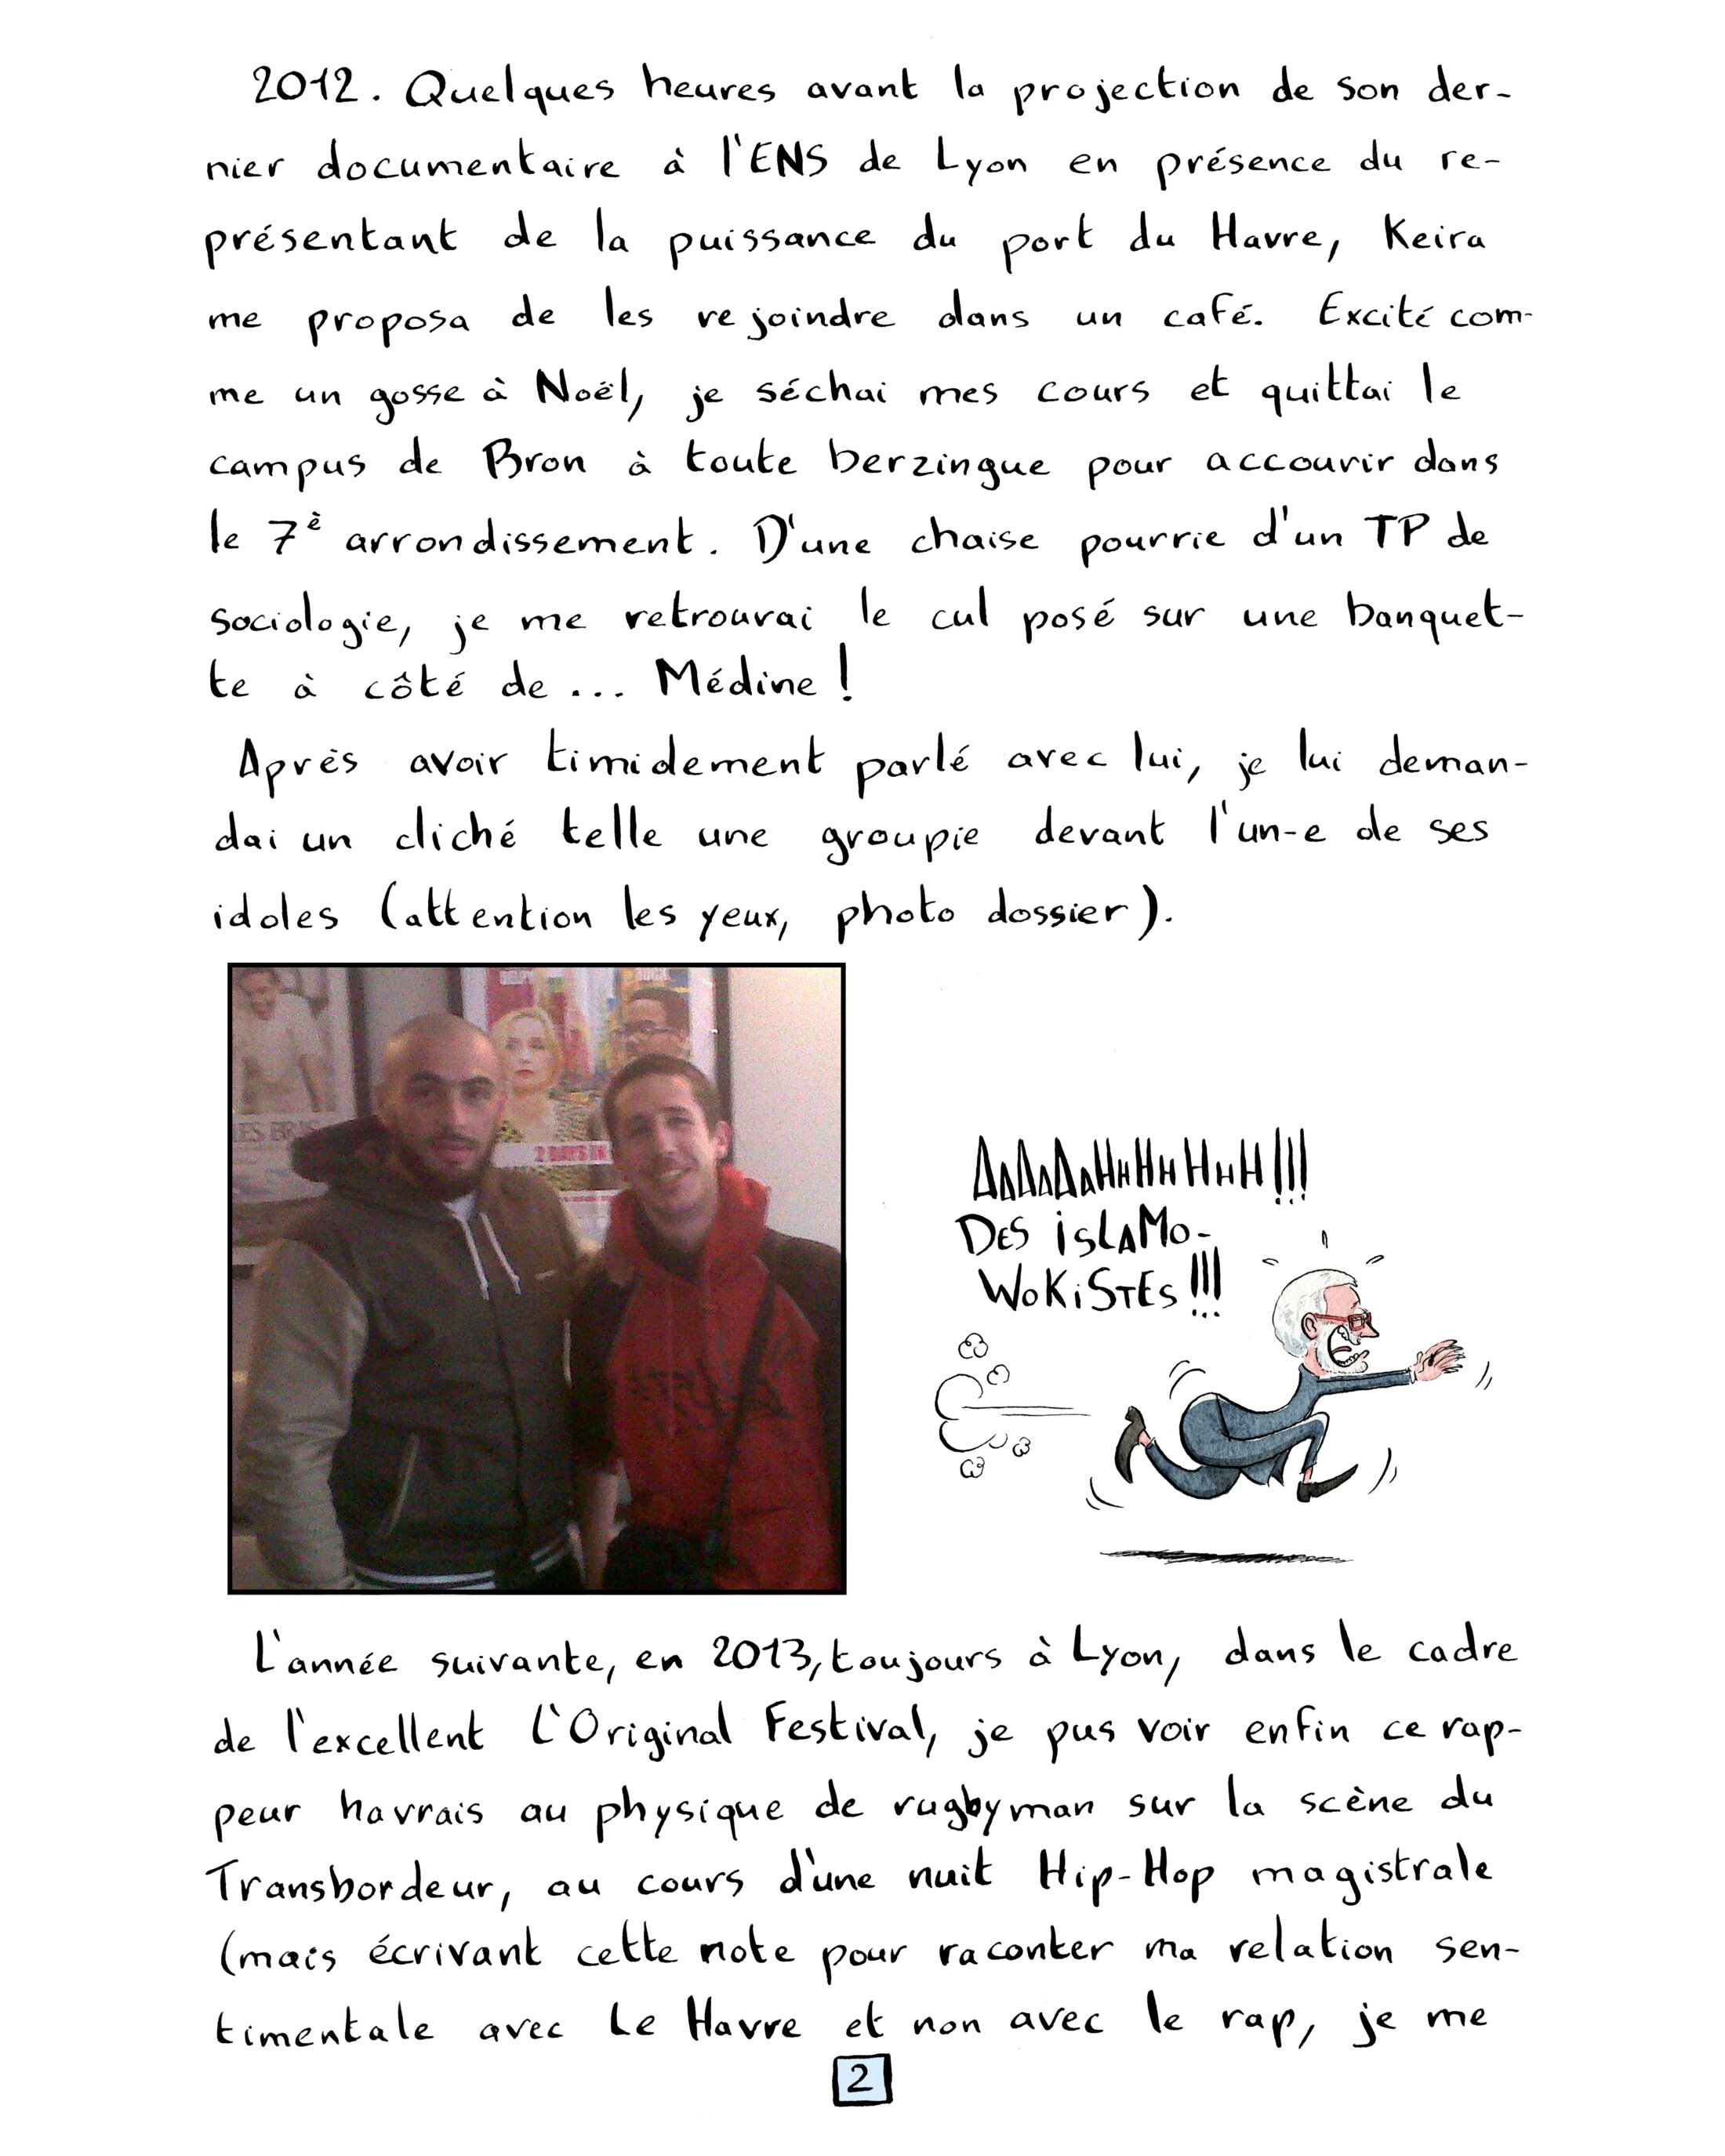 2012. Quelques heures avant la projection de son der-
nier documentaire à l'ENS de Lyon en présence du re-
présentant de la puissance du port du Havre, Keira
me proposa de les rejoindre dans un café. Excité com-
me un gosse à Noël, je séchai mes cours et quittai le
campus de Bron à toute berzingue pour accourir dans
le 7è arrondissement. D'une chaise pourrie d'un TP de
sociologie, je me retrouvai le cul posé sur une banquet-
te à côté de... Médine !
Après avoir timidement parlé avec lui, je lui deman-
dai un cliché telle une groupie devant l'un-e de ses
idoles (attention les yeux, photo dossier).
2 DAYS IN
AAAAAAHHHHHHH!!!
DES iSLAMO-
WOKiSTES!!!
L'année suivante, en 2013, toujours à Lyon, dans le cadre
de l'excellent L'Original Festival, je pus voir enfin ce rap-
peur havrais au physique de rugbyman sur la scène du
Transbordeur, au cours d'une nuit Hip-Hop magistrale
(mais écrivant cette note pour raconter ma relation sen-
timentale avec Le Havre et non avec le rap, je me
2